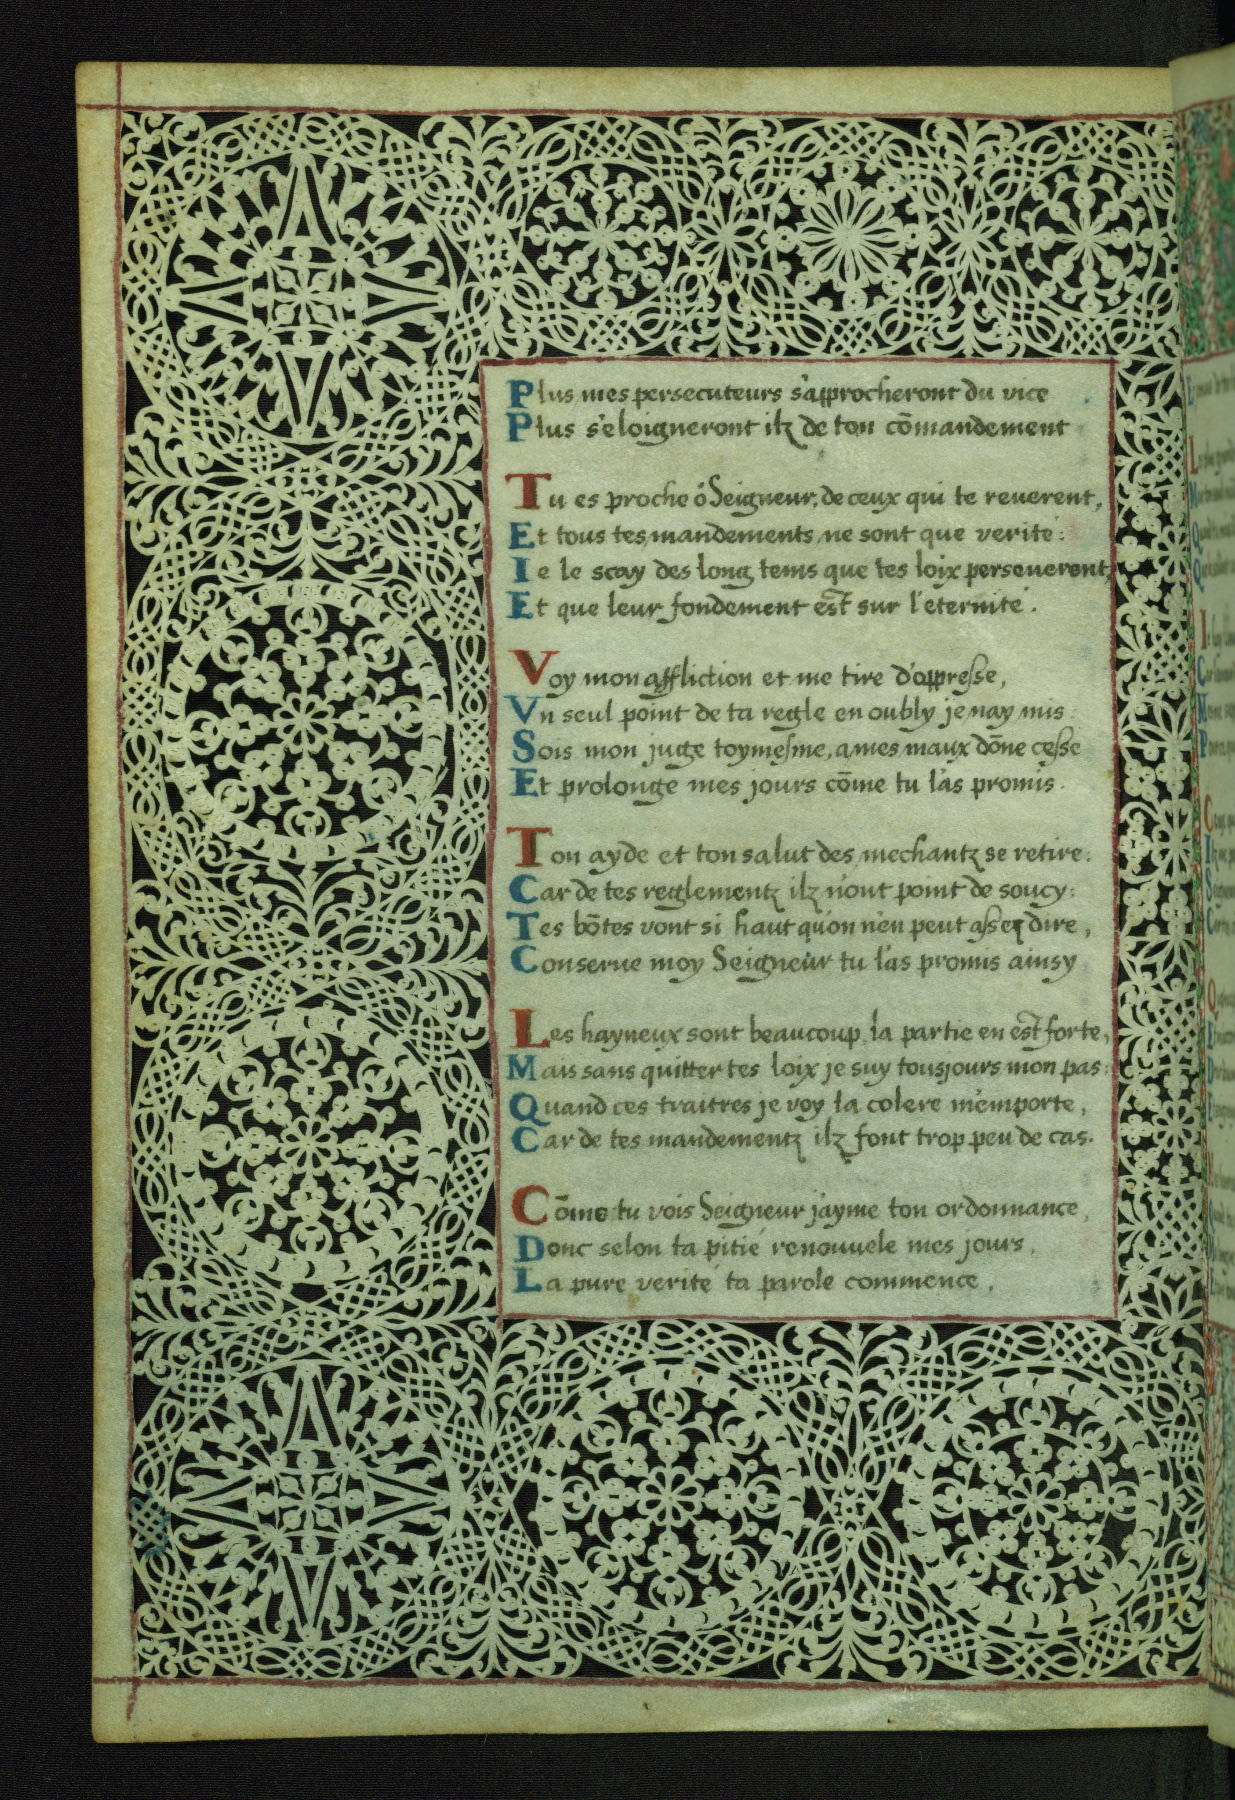 Plus mes persecuteurs s'approcheront du vice
Plus s'eloigneront ilz de ton cōmandement
Tu es proche ó Seigneur, de ceux qui te reuerent,
Et tous tes mandements ne sont que verité :
Ie le scay des long tems que tes loix perseuerent,
Et que leur fondement est sur l'eternité .
Voy mon affliction et me tire d'oppresse,
Vn seul point de ta regle en oubly je n'ay mis
Sois mon juge toymesme, a mes maux dōne cesse
Et prolonge mes jours cōme tu l'as promis .
Ton ayde et ton salut des mechantz se retire :
Car de tes reglementz ilz n'ont point de soucy :
Tes bōtes vont si haut qu'on n'en peut assez dire ,
Conserue moy Seigneur tu l'as promis ainsy
Les hayneux sont beaucoup, la partie en est forte,
Mais sans quitter tes loix je suy tousjours mon pas :
Quand ces traitres je voy la colere m'emporte ,
Car de tes mandementz ilz font trop peu de cas.
Cōme tu vois Seigneur j'ayme ton ordonnance ,
Donc selon ta pitié renouuele mes jours ,
La pure verité ta parole commence ,